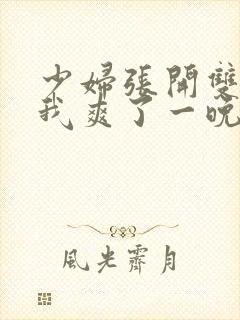 少婦張開雙
我爽了一晚
風光霽月